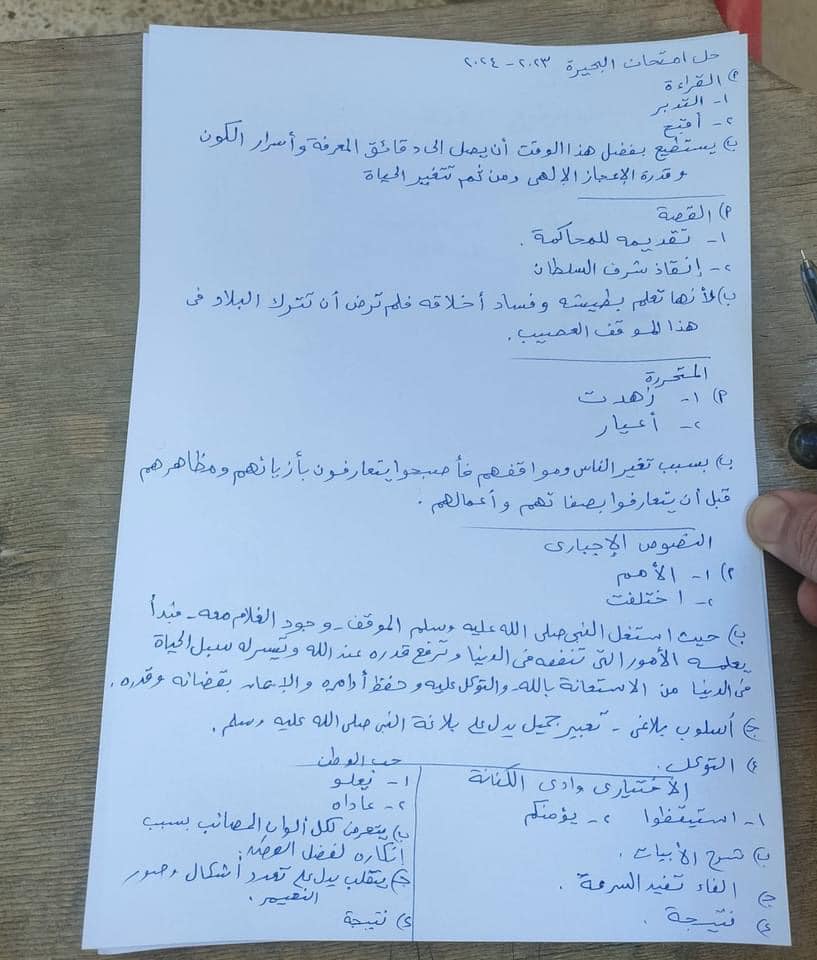 حل امتحان البحيرة ٢٠٢٣ - ٢٠٢٤
القراءة
أ)
١- التدبر
٢- أقبح
ب) يستطيع بفضل هذا الوقت أن يصل الى دقائق المعرفة وأسرار الكون
وقدرة الإعجاز الإلهى ومن ثم تتغير الحياة
أ) القصة
١- تقديمه للمحاكمة .
٢- إنقاذ شرف السلطان
ب) لأنها تعلم بطيشه وفساد أخلاقه فلم ترض أن تترك البلاد فى
هذا الموقف العصيب .
المتحررة
أ) ١- زهدت
٢- أعيار
ب) بسبب تغير الناس ومواقفهم فأصبحوا يتعارفون بأزيائهم ومظاهرهم
قبل أن يتعارفوا بصفاتهم وأعمالهم .
النصوص الإجبارى
أ) ١- الأهم
٢- اختلفت
ب) حيث استغل النبى صلى الله عليه وسلم الموقف - وجود الغلام معه - فبدأ
يعلمه الأمور التى تنفعه فى الدنيا وترفع قدره عند الله وتيسر له سبل الحياة
فى الدنيا من الاستعانة بالله والتوكل عليه وحفظ أوامره والإيمان بقضائه وقدره .
ج) أسلوب بلاغى - تعبير جميل يدل على بلاغة النبى صلى الله عليه وسلم .
د) التوكل .
الاختيارى وادى الكنانة
١- استيقظوا ٢- يؤمنكم
ب) شرح الأبيات .
ج) الفاء تفيد السرعة .
د) نتيجة .
حب الوطن
١- يعلو
٢- عاداه
ب) يتعرض لكل ألوان المصائب بسبب
إنكاره لفضل الوطن .
ج) يتقلب يدل على تعدد أشكال وصور
النعيم .
د) نتيجة